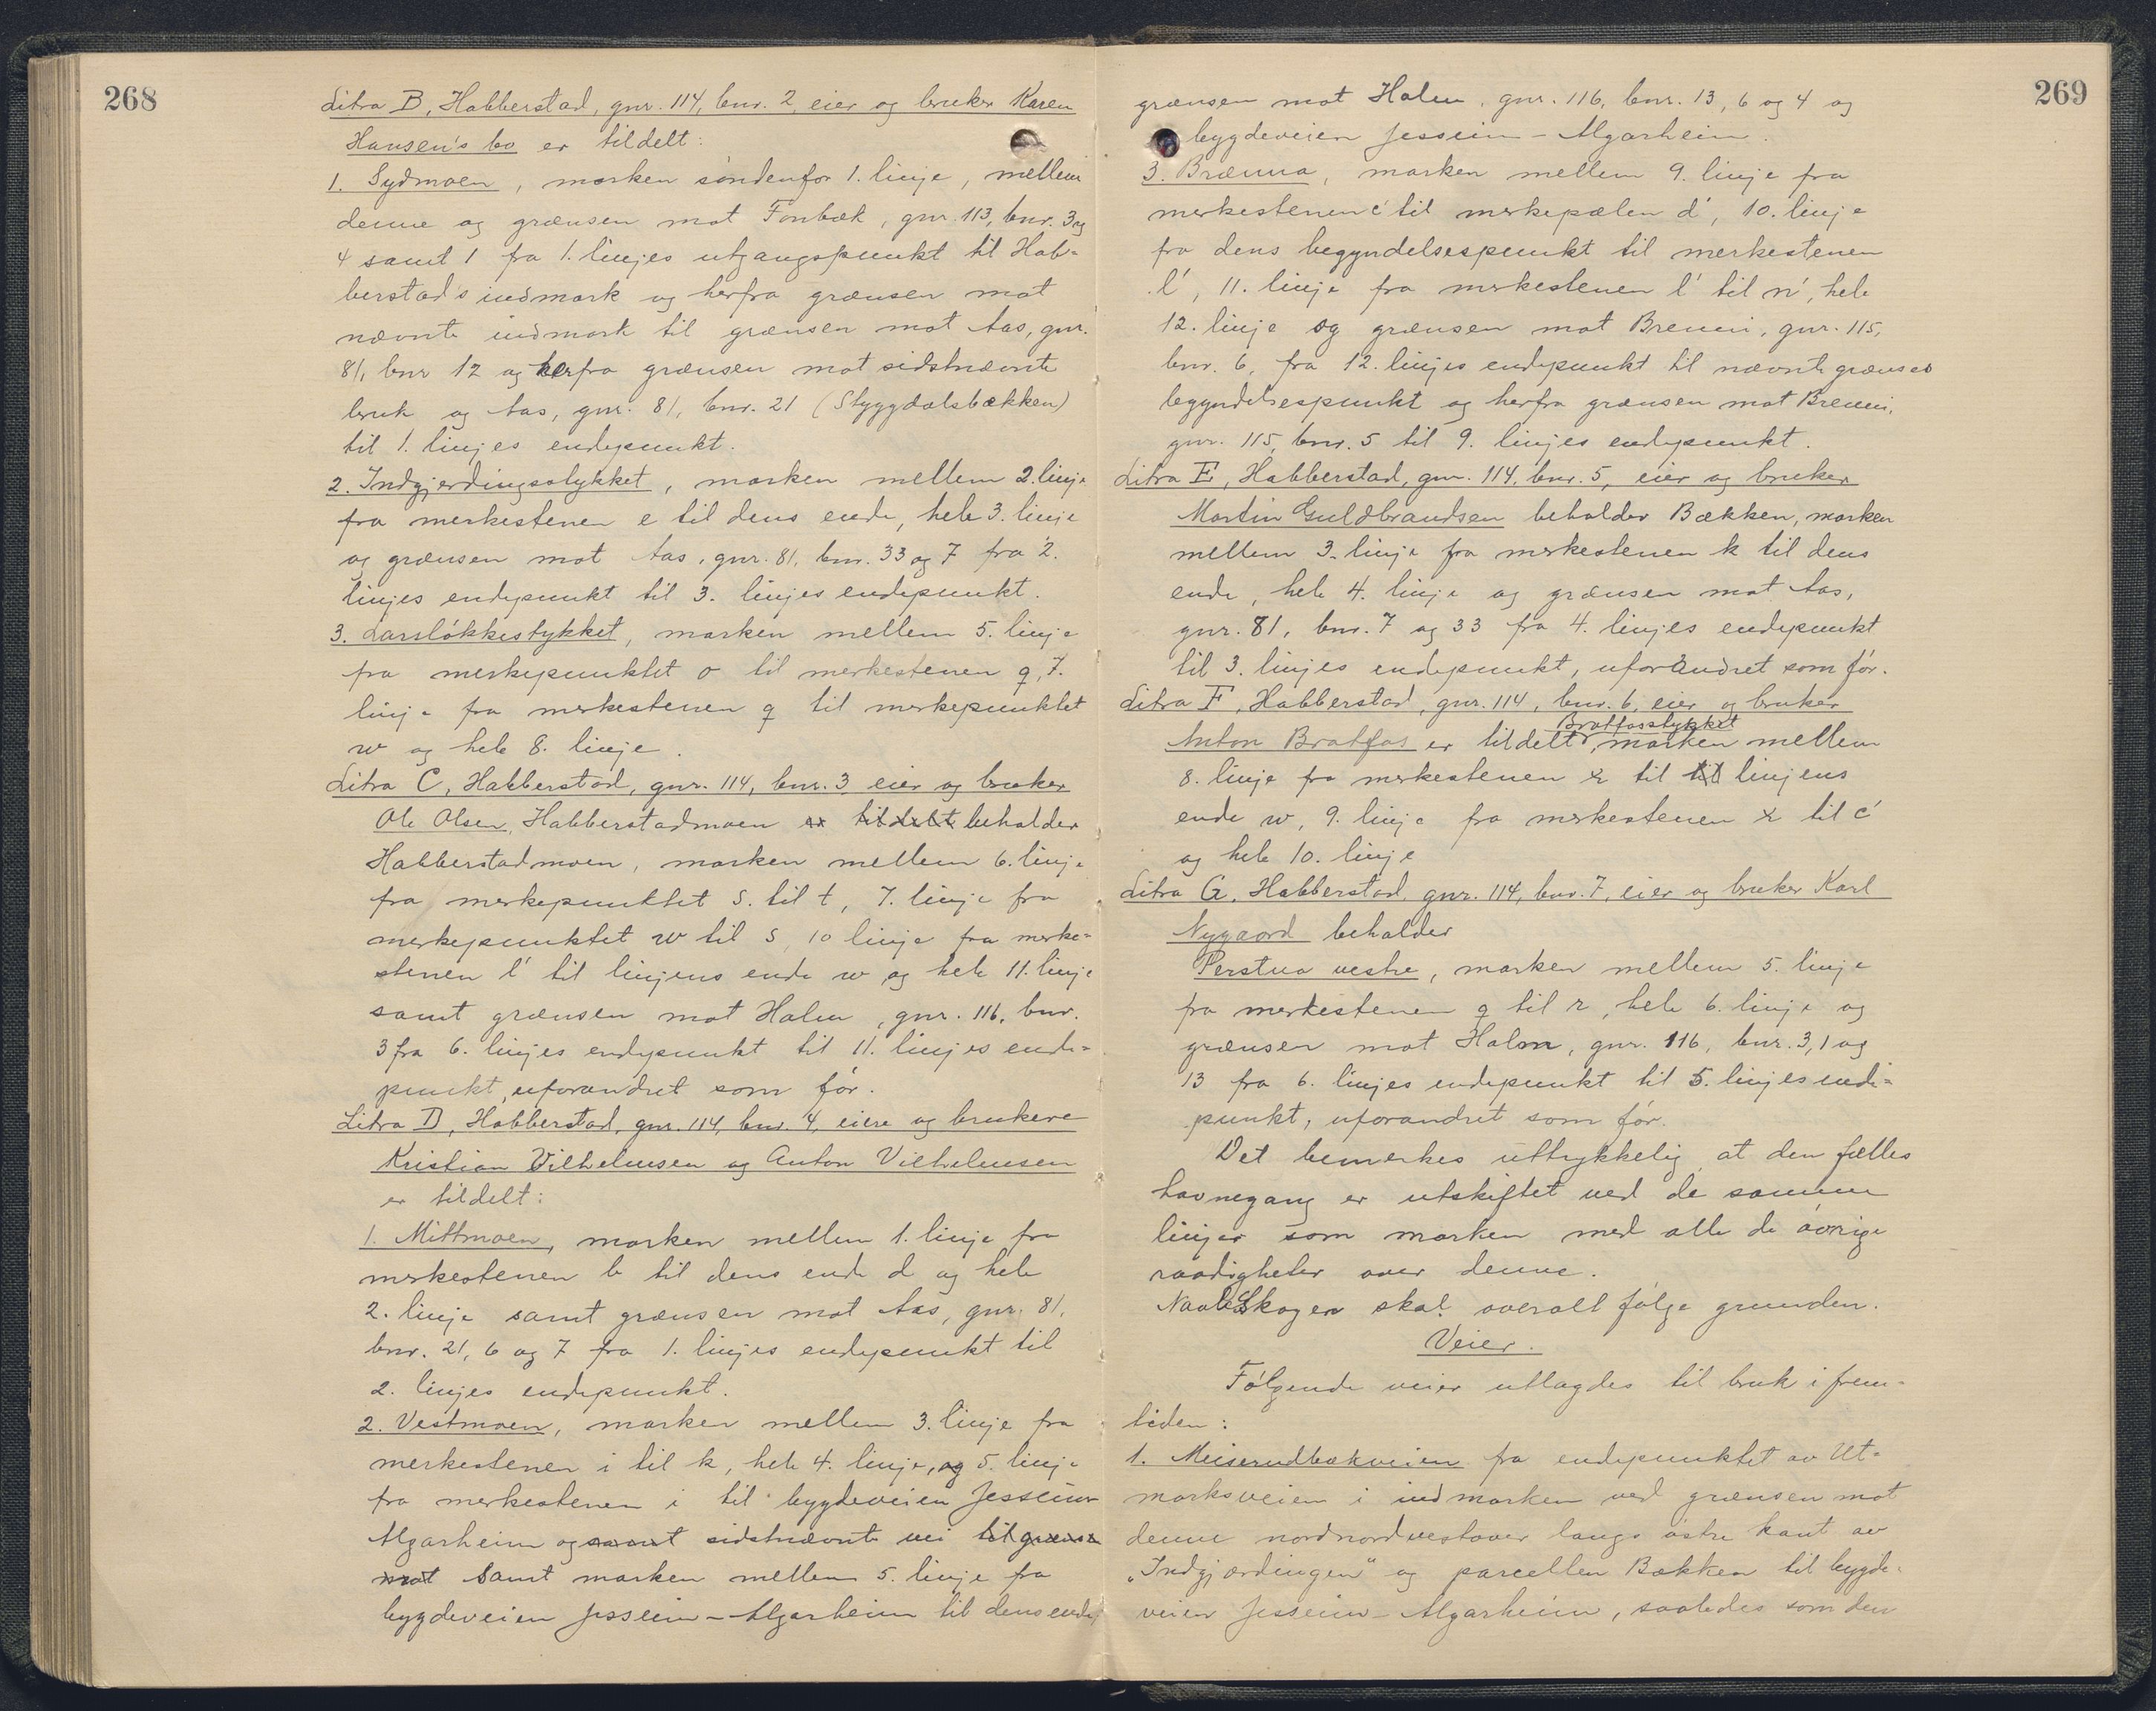 268
Litra B, Habberstad, gnr. 114, bnr. 2, eier og bruker Karen
Hansen's bo er tildelt:
1. Sydmoen, marken søndenfor 1. linje, mellem
denne og grænsen mot Fonbæk, gnr. 113, bnr. 3 og
4 samt 1 fra 1. linjes utgangspunkt til Hab-
berstad's indmark og herfra grænsen mot
nævnte indmark til grænsen mot Aas, gnr.
81, bnr 12 og herfra grænsen mot sidstnævnte
bruk og Aas, gnr. 81, bnr. 21 (Styggdalsbækken)
til 1. linjes endepunkt.
2. Indgjerdingsstykket, marken mellem 2. linje
fra merkestenen e til dens ende, hele 3. linje
og grænsen mot Aas, gnr. 81, bnr. 33 og 7 fra 2.
linjes endepunkt til 3. linjes endepunkt.
3. Larsløkkestykket, marken mellem 5. linje
fra merkepunktet o til merkestenen q, 7.
linje fra merkestenen q til merkepunktet
w og hele 8. linje.
Litra C, Habberstad, gnr. 114, bnr. 3 eier og bruker
Ole Olsen, Habberstadmoen er tildelt beholder
Habberstadmoen, marken mellem 6. linje
fra merkepunktet s. til t, 7. linje fra
merkepunktet w til s, 10 linje fra merke-
stenen l' til linjens ende w og hele 11. linje
samt grænsen mot Holm, gnr. 116, bnr.
3 fra 6. linjes endepunkt til 11. linjes ende-
punkt, uforandret som før.
Litra D, Habberstad, gnr. 114, bnr. 4, eiere og brukere
Kristian Vilhelmsen og Anton Vilhelmsen
er tildelt:
1. Mittmoen, marken mellem 1. linje fra
merkestenen b til dens ende d og hele
2. linje samt grænsen mot Aas, gnr. 81,
bnr. 21, 6 og 7 fra 1. linjes endepunkt til
2. linjes endepunkt.
2. Vestmoen, marken mellem 3. linje fra
merkestenen i til k, hele 4. linje, og 5. linje
fra merkestenen i til bygdeveien Jesseim
Algarheim og samt sidstnævnte vei til grænse
mot samt marken mellem 5. linje fra
bygdeveien Jesseim - Algarheim til dens ende,
269
grænsen mot Holm, gnr. 116, bnr. 13, 6 og 4 og
bygdeveien Jesseim - Algarheim.
3. Brænna, marken mellem 9. linje fra
merkestenen c' til merkepælen d', 10. linje
fra dens begyndelsespunkt til merkestenen
l', 11. linje fra merkestenen l' til n', hele
12. linje og grænsen mot Brenni, gnr. 115,
bnr. 6, fra 12. linjes endepunkt til nævnte grænses
begyndelsespunkt og herfra grænsen mot Brenni,
gnr. 115, bnr. 5 til 9. linjes endepunkt.
Litra E, Habberstad, gnr. 114, bnr. 5, eier og bruker
Martin Guldbrandsen beholder Bækken, marken
mellem 3. linje fra merkestenen k til dens
ende, hele 4. linje og grænsen mot Aas,
gnr. 81, bnr. 7 og 33 fra 4. linjes endepunkt
til 3. linjes endepunkt, uforandret som før.
Litra F, Habberstad, gnr. 114, bnr. 6, eier og bruker
Bratfosstykket
Anton Bratfos er tildelt, marken mellem
8. linje fra merkestenen x til til linjens
ende w, 9. linje fra merkestenen x til c'
og hele 10. linje
Litra G, Habberstad, gnr. 114, bnr. 7, eier og bruker Karl
Nygaard beholder
Perstua vestre, marken mellem 5. linje
fra merkestenen q til r, hele 6. linje og
grænsen mot Holm, gnr. 116, bnr. 3, 1 og
13 fra 6. linjes endepunkt til 5. linjes ende-
punkt, uforandret som før.
Det bemerkes uttrykkelig at den fælles
havnegang er utskiftet ved de samme
linjer som marken med alle de øvrige
raadigheter over denne.
Naaleskogen skal overalt følge grunden.
Veier.
Følgende veier utlagdes til bruk i frem-
tiden:
1. Meiserudbækveien fra endepunktet av Ut-
marksveien i indmarken ved grænsen mot
denne nordnordvestover langs østre kant av
"Indgjærdingen" og parcellen Bækken til bygde-
veien Jesseim - Algarheim, saaledes som den